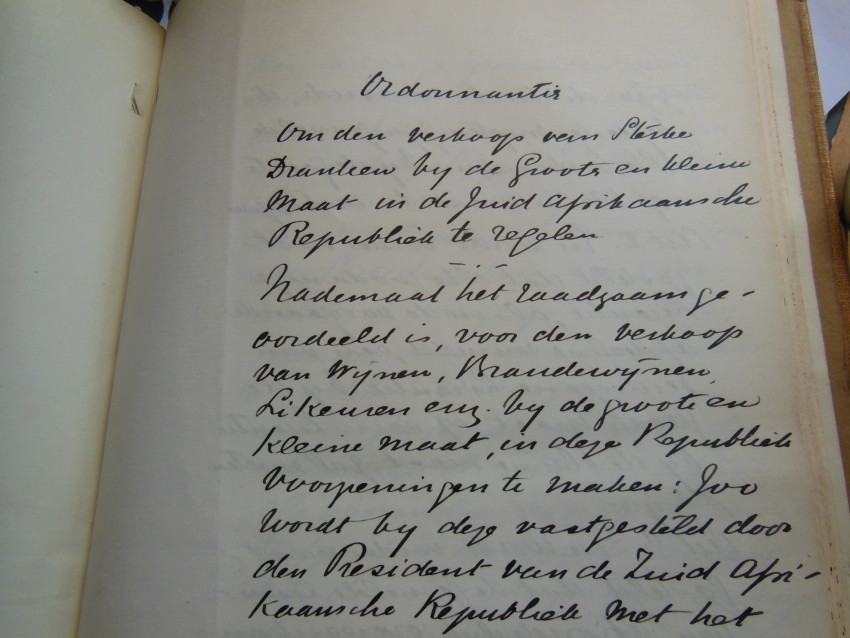 Ordonnantie
Om den verkoop van Sterke
Dranken by de Groote en kleine
Maat in de Zuid Afrikaansche
Republiek te regelen
Nademaal het raadzaam ge-
oordeeld is, voor den verkoop
van Wijnen, Brandewijnen
Likeuren enz. by de groote en
kleine maat, in deze Republiek
Voorzeningen te maken: Zoo
wordt by deze vastgesteld door
den President van de Zuid Afri-
kaansche Republiek met het